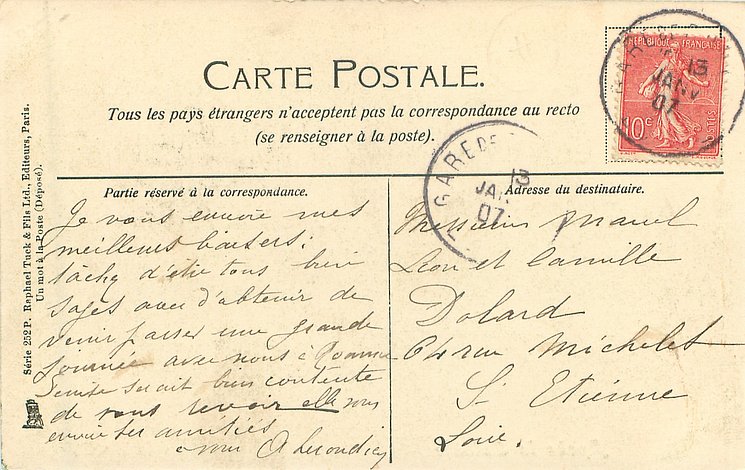 CARTE POSTALE.
Tous les pays étrangers n'acceptent pas la correspondance au recto
(se renseigner à la poste).
RÉPUBLIQUE FRANÇAISE
10c
POSTES
13
JANV
07
GARE DE
13
JAN
07
Série 252 P. Raphael Tuck & Fils Ltd., Editeurs, Paris.
Un mot à la Poste (Déposé).
Partie réservé à la correspondance.
Je vous envoie mes
meilleurs baisers;
tâchez d'être tous bien
sages avec d'obtenir de
venir passer une grande
journée avec nous à
serait bien contente
de vous revoir elle vous
envoie ses amitiés
Adresse du destinataire.
Messieurs Marcel
Léon et Camille
Dolard
64 rue Michelet
St Etienne
Loire.